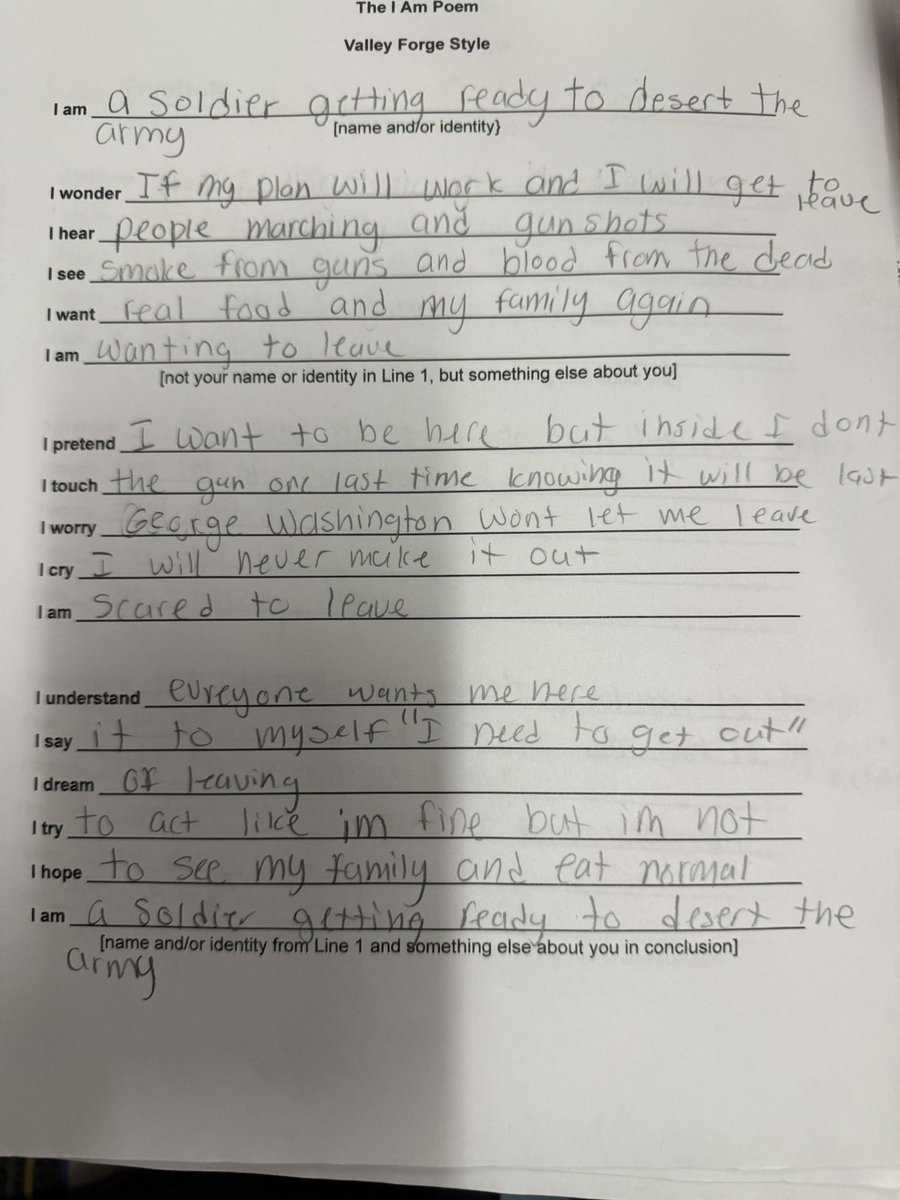 The I Am Poem
Valley Forge Style
I am a soldier getting ready to desert the
army
[name and/or identity}
I wonder If my plan will work and I will get to
leave
I hear people marching and gunshots
I see smoke from guns and blood from the dead
I want real food and my family again
I am wanting to leave
[not your name or identity in Line 1, but something else about you]
I pretend I want to be here but inside I dont
I touch the gun one last time knowing it will be last
I worry George Washington wont let me leave
I cry I will never make it out
I am scared to leave
I understand evreyone wants me here
I say it to myself "I need to get out"
I dream of leaving
I try to act like im fine but im not
I hope to see my family and eat normal
I am a soldier getting ready to desert the
[name and/or identity from Line 1 and something else about you in conclusion]
army